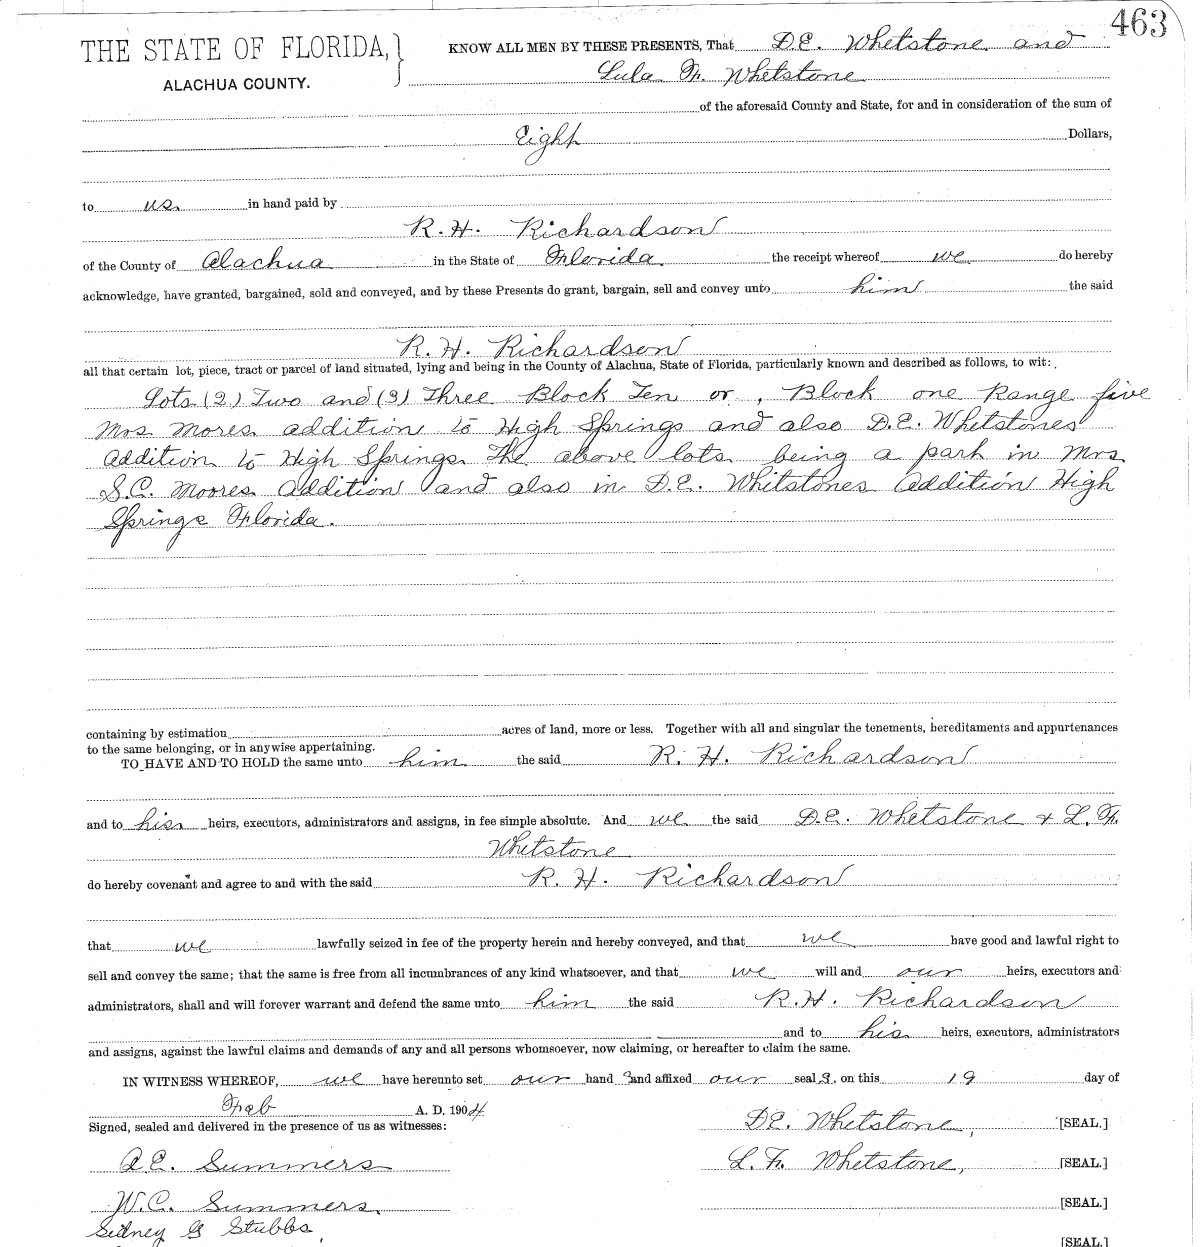 463
THE STATE OF FLORIDA,
ALACHUA COUNTY.
KNOW ALL MEN BY THESE PRESENTS, That D.E. Whetstone and
Lula F. Whetstone
of the aforesaid County and State, for and in consideration of the sum of
Eight Dollars,
to us in hand paid by
R. H. Richardson
of the County of Alachua in the State of Florida the receipt whereof we do hereby
acknowledge, have granted, bargained, sold and conveyed, and by these Presents do grant, bargain, sell and convey unto him the said
R. H. Richardson
all that certain lot, piece, tract or parcel of land situated, lying and being in the County of Alachua, State of Florida, particularly known and described as follows, to wit:
Lots (2) Two and (3) Three Block Ten or, Block one Range five
Mrs Mores addition to High Springs and also D.E. Whetstones
Addition to High Springs. The above lots being a part in Mrs
S.C. Moores Addition and also in D.E. Whitstones Addition High
Springs Florida.
containing by estimation acres of land, more or less. Together with all and singular the tenements, hereditaments and appurtenances
to the same belonging, or in anywise appertaining.
TO HAVE AND TO HOLD the same unto him the said R. H. Richardson
and to his heirs, executors, administrators and assigns, in fee simple absolute. And we the said D.E. Whetstone & L. F.
Whetstone
do hereby covenant and agree to and with the said R. H. Richardson
that we lawfully seized in fee of the property herein and hereby conveyed, and that we have good and lawful right to
sell and convey the same; that the same is free from all incumbrances of any kind whatsoever, and that we will and our heirs, executors and
administrators, shall and will forever warrant and defend the same unto him the said R. H. Richardson
and to his heirs, executors, administrators
and assigns, against the lawful claims and demands of any and all persons whomsoever, now claiming, or hereafter to claim the same.
IN WITNESS WHEREOF, we have hereunto set our hand s and affixed our seal s. on this 19 day of
Feb A. D. 1904
Signed, sealed and delivered in the presence of us as witnesses:
D.E. Whetstone, [SEAL.]
A.E. Summers L. F. Whetstone, [SEAL.]
W.C. Summers. [SEAL.]
Sidney G Stubbs, [SEAL.]